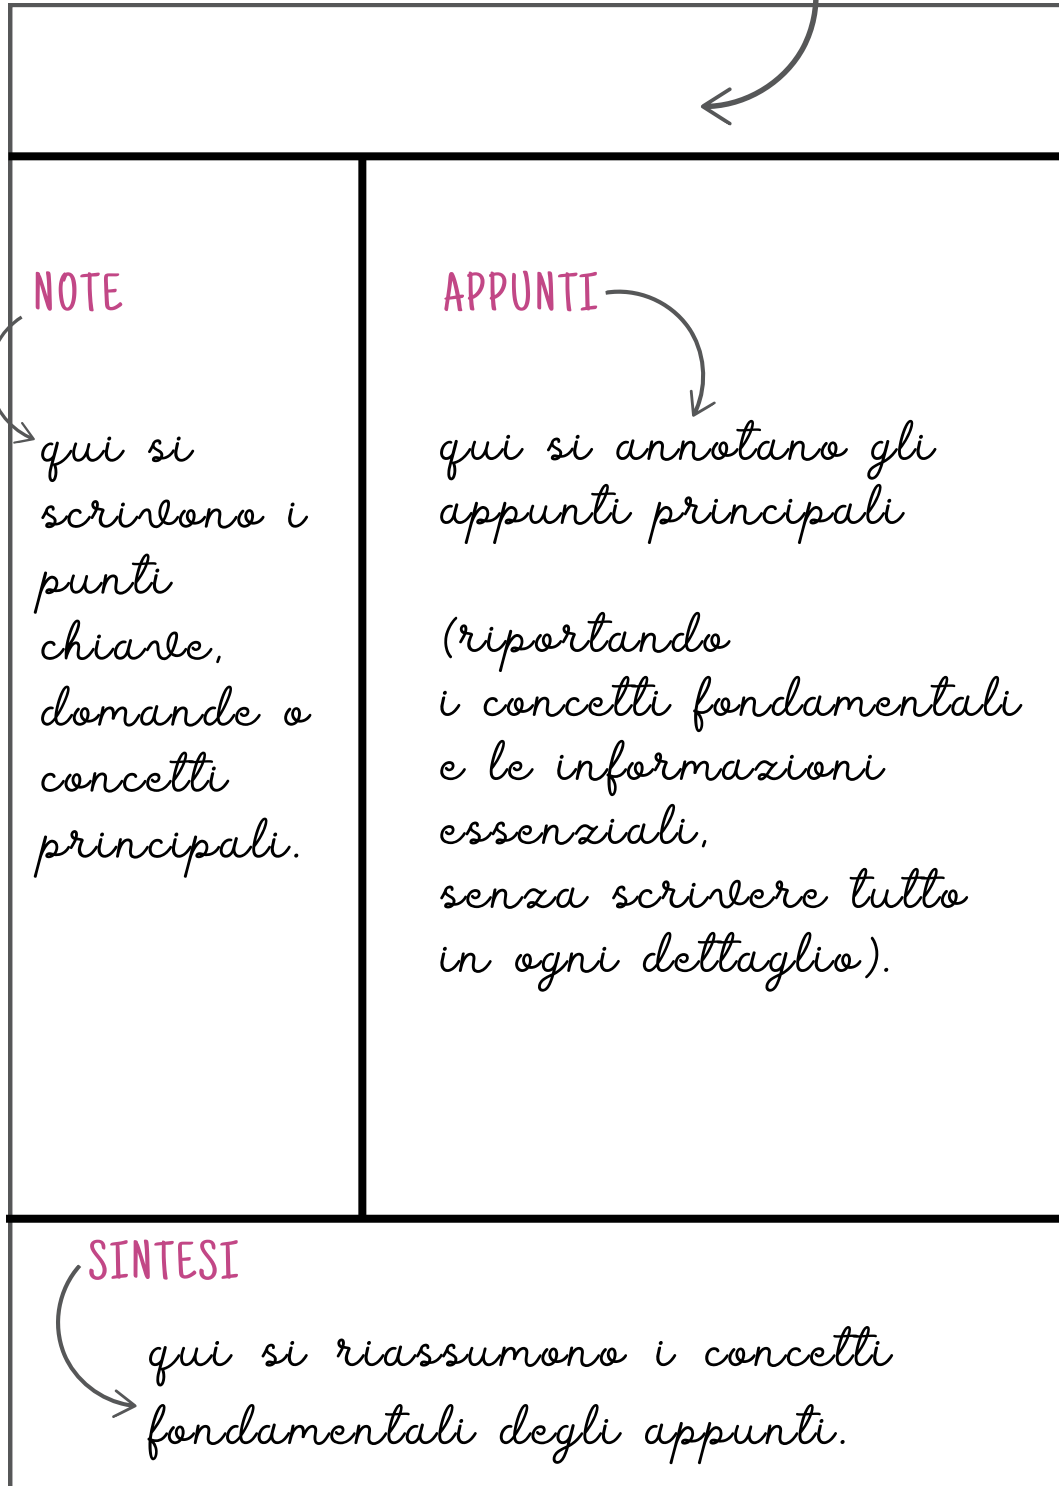 NOTE
qui si
scrivono i
punti
chiave,
domande o
concetti
principali.
APPUNTI
qui si annotano gli
appunti principali
(riportando
i concetti fondamentali
e le informazioni
essenziali,
senza scrivere tutto
in ogni dettaglio).
SINTESI
qui si riassumono i concetti
fondamentali degli appunti.